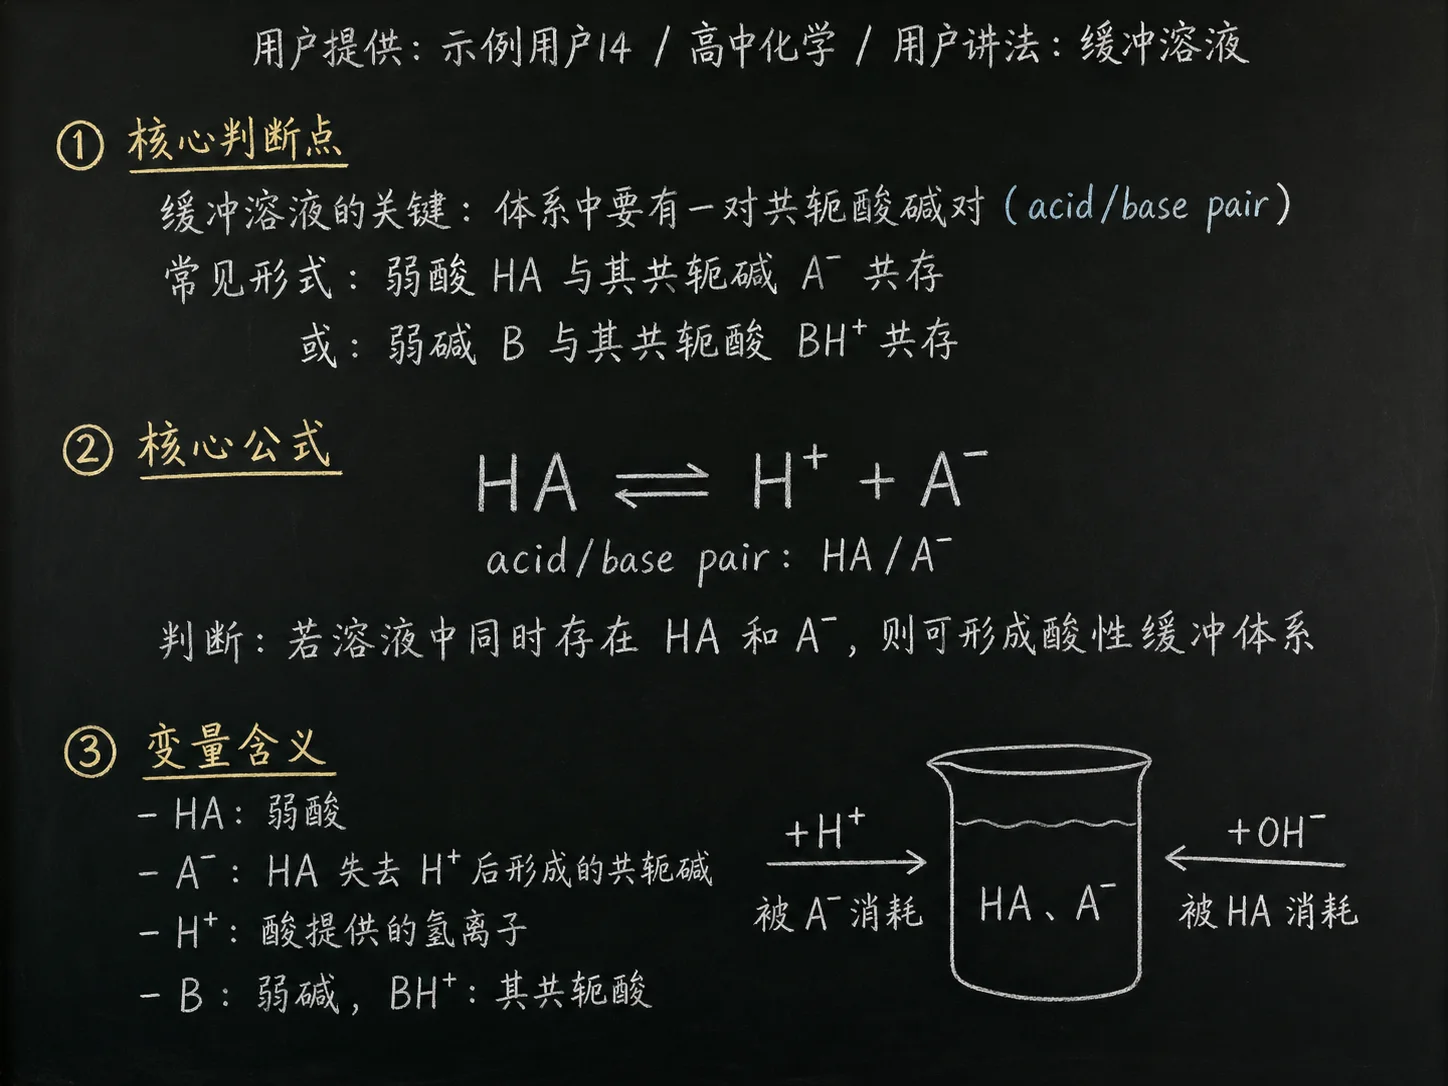 用户提供：示例用户14 / 高中化学 / 用户讲法：缓冲溶液
① 核心判断点
缓冲溶液的关键：体系中要有一对共轭酸碱对（acid/base pair）
常见形式：弱酸 HA 与其共轭碱 A⁻ 共存
或：弱碱 B 与其共轭酸 BH⁺ 共存
② 核心公式
HA ⇌ H⁺ + A⁻
acid/base pair：HA/A⁻
判断：若溶液中同时存在 HA 和 A⁻，则可形成酸性缓冲体系
③ 变量含义
- HA：弱酸
- A⁻：HA 失去 H⁺ 后形成的共轭碱
- H⁺：酸提供的氢离子
- B：弱碱，BH⁺：其共轭酸
+H⁺
被 A⁻ 消耗
HA、A⁻
+OH⁻
被 HA 消耗